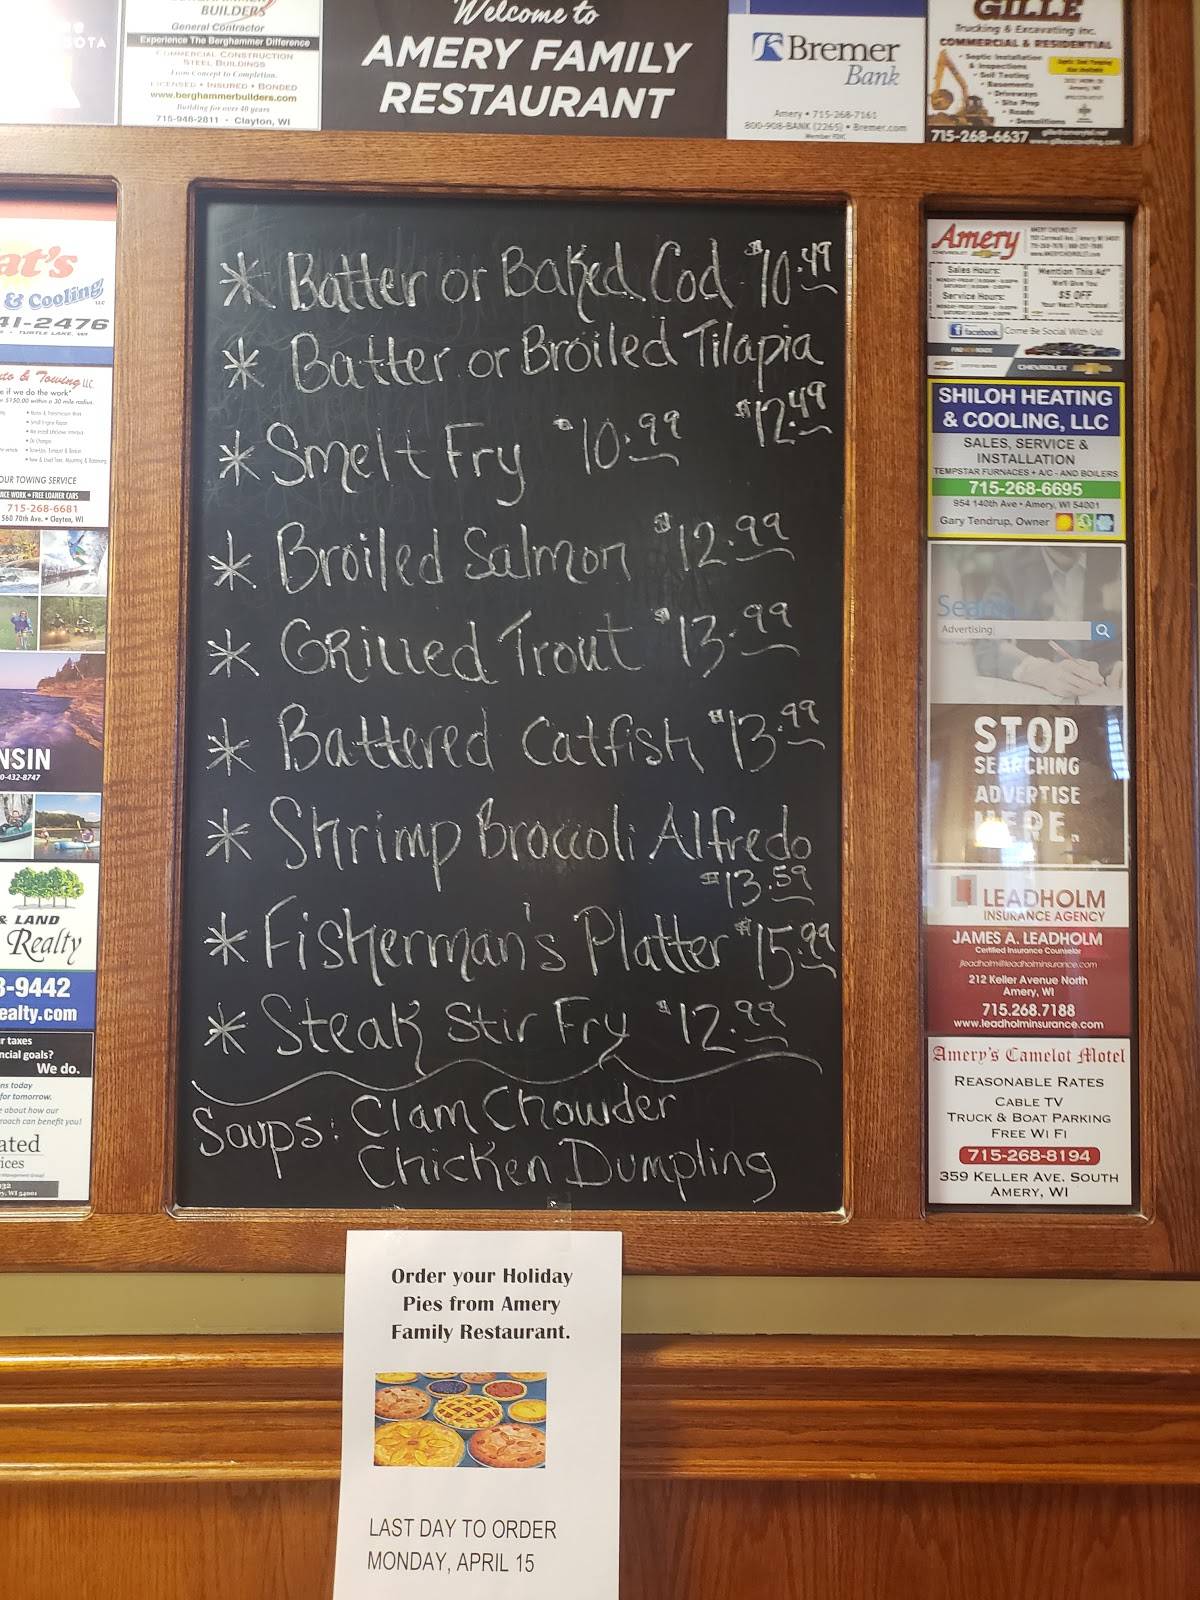 BUILDERS
General Contractor
Experience The Berghammer Difference
COMMERCIAL CONSTRUCTION
STEEL BUILDINGS
From Concept to Completion.
LICENSED • INSURED • BONDED
www.berghammerbuilders.com
Building for over 40 years
715-948-2811 • Clayton, WI
Welcome to
AMERY FAMILY
RESTAURANT
Bremer
Bank
Amery • 715-268-7161
800-908-BANK (2265) • Bremer.com
Member FDIC
GILLE
Trucking & Excavating Inc.
COMMERCIAL & RESIDENTIAL
• Septic Installation
& Inspections
• Soil Testing
• Basements
• Driveways
• Site Prep
• Roads
• Demolitions
715-268-6637
www.gilleexcavating.com
at's
& Cooling LLC
41-2476
TURTLE LAKE, WI
to & Towing LLC
e if we do the work"
OUR TOWING SERVICE
NCE WORK • FREE LOANER CARS
715-268-6681
560 70th Ave. • Clayton, WI
NSIN
0-432-8747
& LAND
Realty
3-9442
ealty.com
r taxes
ncial goals?
We do.
ns today
for tomorrow.
e about how our
roach can benefit you!
ated
ices
* Batter or Baked Cod $10.49
* Batter or Broiled Tilapia
$12.49
* Smelt Fry $10.99
* Broiled Salmon $12.99
* Grilled Trout $13.99
* Battered Catfish $13.99
* Shrimp Broccoli Alfredo
$13.59
* Fisherman's Platter $15.99
* Steak Stir Fry $12.99
Soups: Clam Chowder
Chicken Dumpling
Amery
CHEVROLET
Sales Hours:
Service Hours:
Mention This Ad*
We'll Give You
$5 OFF
Your Next Purchase!
facebook Come Be Social With Us!
CHEVROLET
SHILOH HEATING
& COOLING, LLC
SALES, SERVICE &
INSTALLATION
TEMPSTAR FURNACES • A/C • AND BOILERS
715-268-6695
954 140th Ave • Amery, WI 54001
Gary Tendrup, Owner
Advertising
STOP
SEARCHING
ADVERTISE
HERE.
LEADHOLM
INSURANCE AGENCY
JAMES A. LEADHOLM
Certified Insurance Counselor
jleadholm@leadholminsurance.com
212 Keller Avenue North
Amery, WI
715.268.7188
www.leadholminsurance.com
Amery's Camelot Motel
REASONABLE RATES
CABLE TV
TRUCK & BOAT PARKING
FREE WI FI
715-268-8194
359 KELLER AVE. SOUTH
AMERY, WI
Order your Holiday
Pies from Amery
Family Restaurant.
LAST DAY TO ORDER
MONDAY, APRIL 15